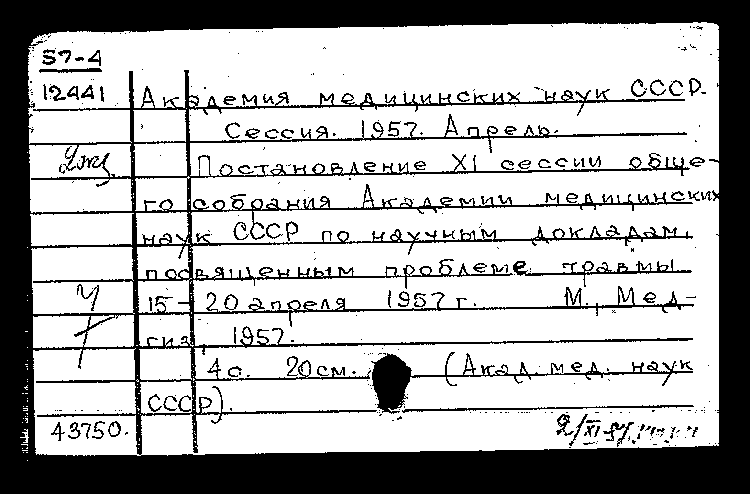 57-4
12441 Академия медицинских наук СССР.
Сессия. 1957. Апрель.
2экз. Постановление XI сессии обще-
го собрания Академии медицинских
наук СССР по научным докладам,
посвященным проблеме травмы
15-20 апреля 1957 г. М., Мед-
гиз, 1957.
4с. 20см. (Акад. мед. наук
СССР).
43750. 2/XI-57